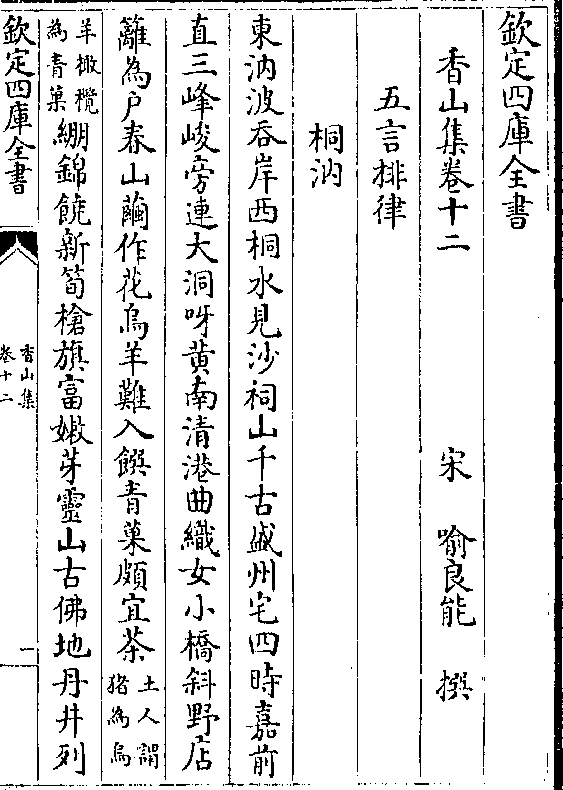 欽定四庫全書
香山集卷十二
宋 喻良能 撰
五言排律
桐汭
東汭波吞岸西桐水見沙祠山千古盛州宅四時嘉前
直三峰峻旁連大洞呀黄南清港曲織女小橋斜野店
籬為户春山蠒作花烏羊難入饌青菓頗宜茶土人謂豬為烏
羊橄欖為青菓綳錦饒新筍槍旗富嫩芽靈山古佛地丹井列
欽定四庫全書
香山集
卷十二
一